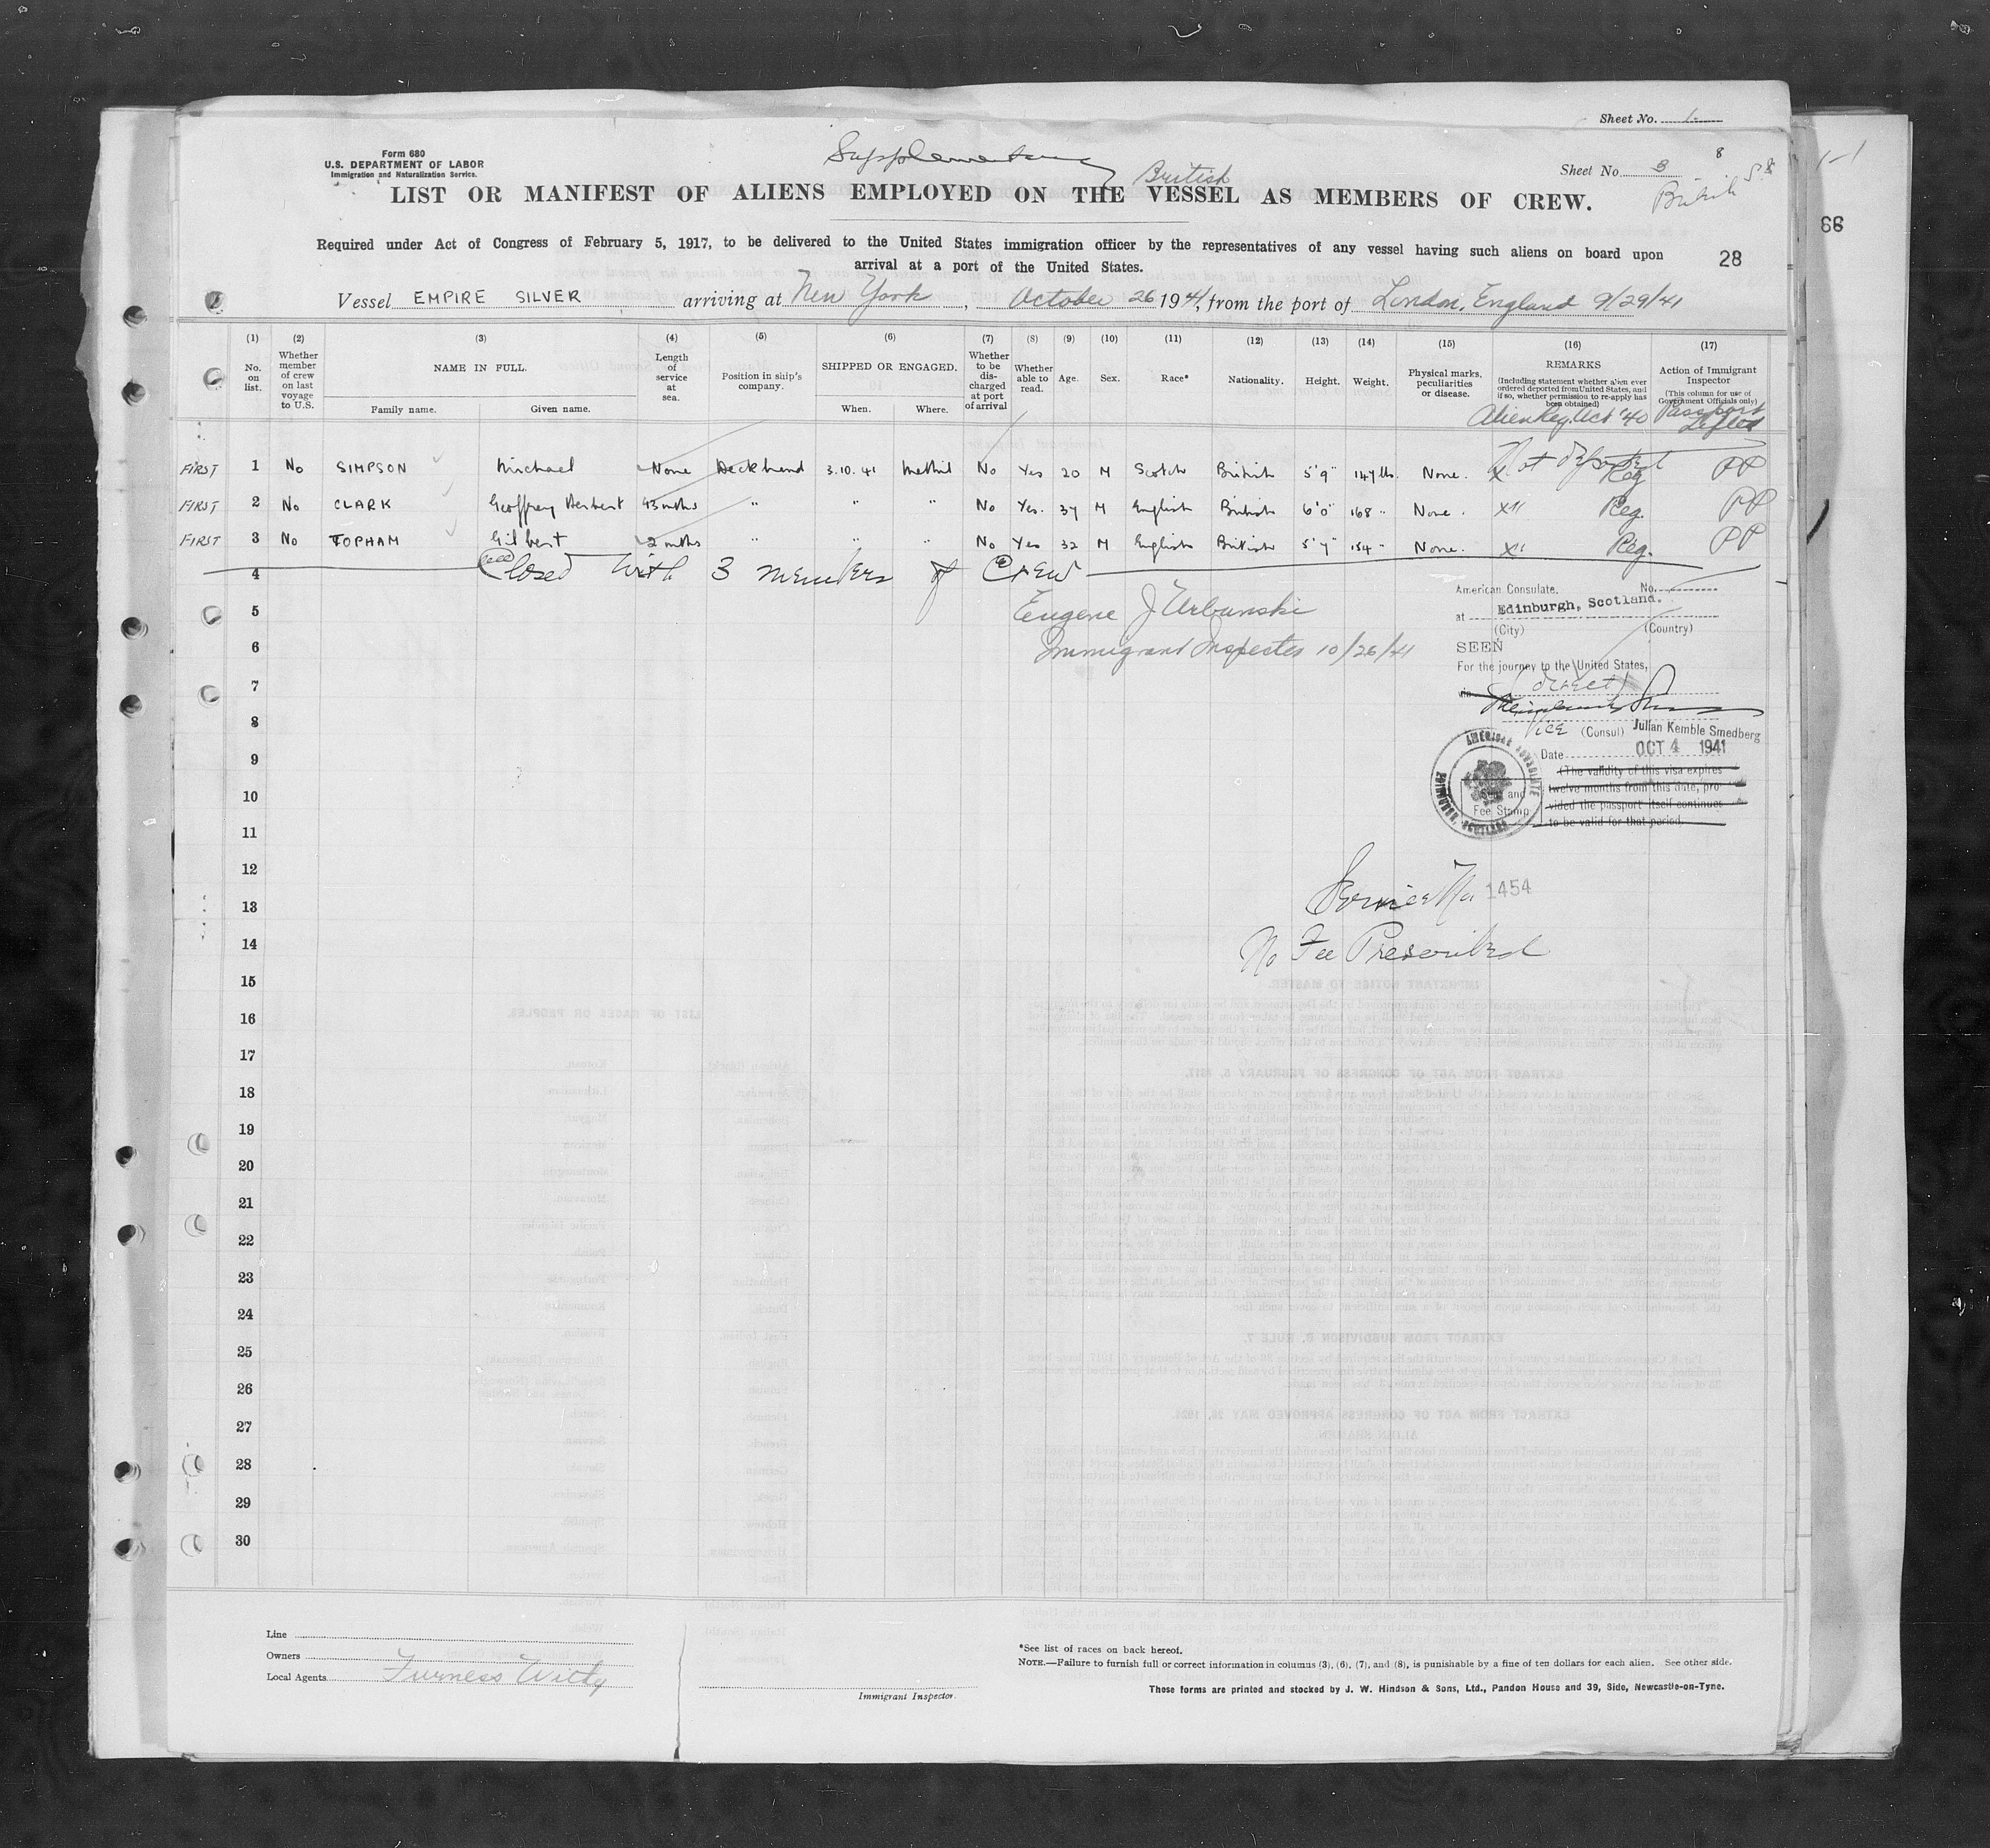 Sheet No. 1
Form 680
U.S. DEPARTMENT OF LABOR
Immigration and Naturalization Service.
Supplementary
British
Sheet No. 3
8
British
LIST OR MANIFEST OF ALIENS EMPLOYED ON THE VESSEL AS MEMBERS OF CREW.
Required under Act of Congress of February 5, 1917, to be delivered to the United States immigration officer by the representatives of any vessel having such aliens on board upon
arrival at a port of the United States.
28
Vessel EMPIRE SILVER arriving at New York, October 26 1941, from the port of London, England 9/29/41
(1) (2) (3) (4) (5) (6) (7) (8) (9) (10) (11) (12) (13) (14) (15) (16) (17)
No. on list.
Whether member of crew on last voyage to U.S.
NAME IN FULL.
Family name. Given name.
Length of service at sea.
Position in ship's company.
SHIPPED OR ENGAGED.
When. Where.
Whether to be dis-charged at port of arrival
Whether able to read.
Age.
Sex.
Race*
Nationality.
Height.
Weight.
Physical marks, peculiarities or disease.
REMARKS
(Including statement whether alien ever ordered deported from United States, and if so, whether permission to re-apply has been obtained)
Action of Immigrant Inspector
(This column for use of Government Officials only)
Alien Reg. Act '40 Passport
FIRST 1 No SIMPSON Michael None Deck hand 3.10.41 Methil No Yes 20 M Scotch British 5'9" 147 lbs. None. Reg PP
FIRST 2 No CLARK Geoffrey Herbert 43 mths " " " No Yes. 37 M English British 6'0" 168 " None. Reg. PP
FIRST 3 No TOPHAM Gilbert 2 mths " " " No Yes 32 M English British 5'7" 154 " None. Reg. PP
4 Closed with 3 members of Crew
5 Eugene J Urbanski
6 Immigrant Inspector 10/26/41
7
8
9
10
11
12
13
14
15
16
17
18
19
20
21
22
23
24
25
26
27
28
29
30
American Consulate, No.
at Edinburgh, Scotland.
(City) (Country)
SEEN
For the journey to the United States,
via (direct)
Vice (Consul) Julian Kemble Smedberg
Date OCT 4 1941
(The validity of this visa expires
twelve months from this date, pro-
vided the passport itself continues
to be valid for that period.
AMERICAN CONSULATE
EDINBURGH, SCOTLAND
Seal and
Fee Stamp
Service No. 1454
No Fee Prescribed
Line
Owners
Local Agents Furness Withy
Immigrant Inspector.
*See list of races on back hereof.
NOTE.—Failure to furnish full or correct information in columns (3), (6), (7), and (8), is punishable by a fine of ten dollars for each alien. See other side.
These forms are printed and stocked by J. W. Hindson & Sons, Ltd., Pandon House and 39, Side, Newcastle-on-Tyne.